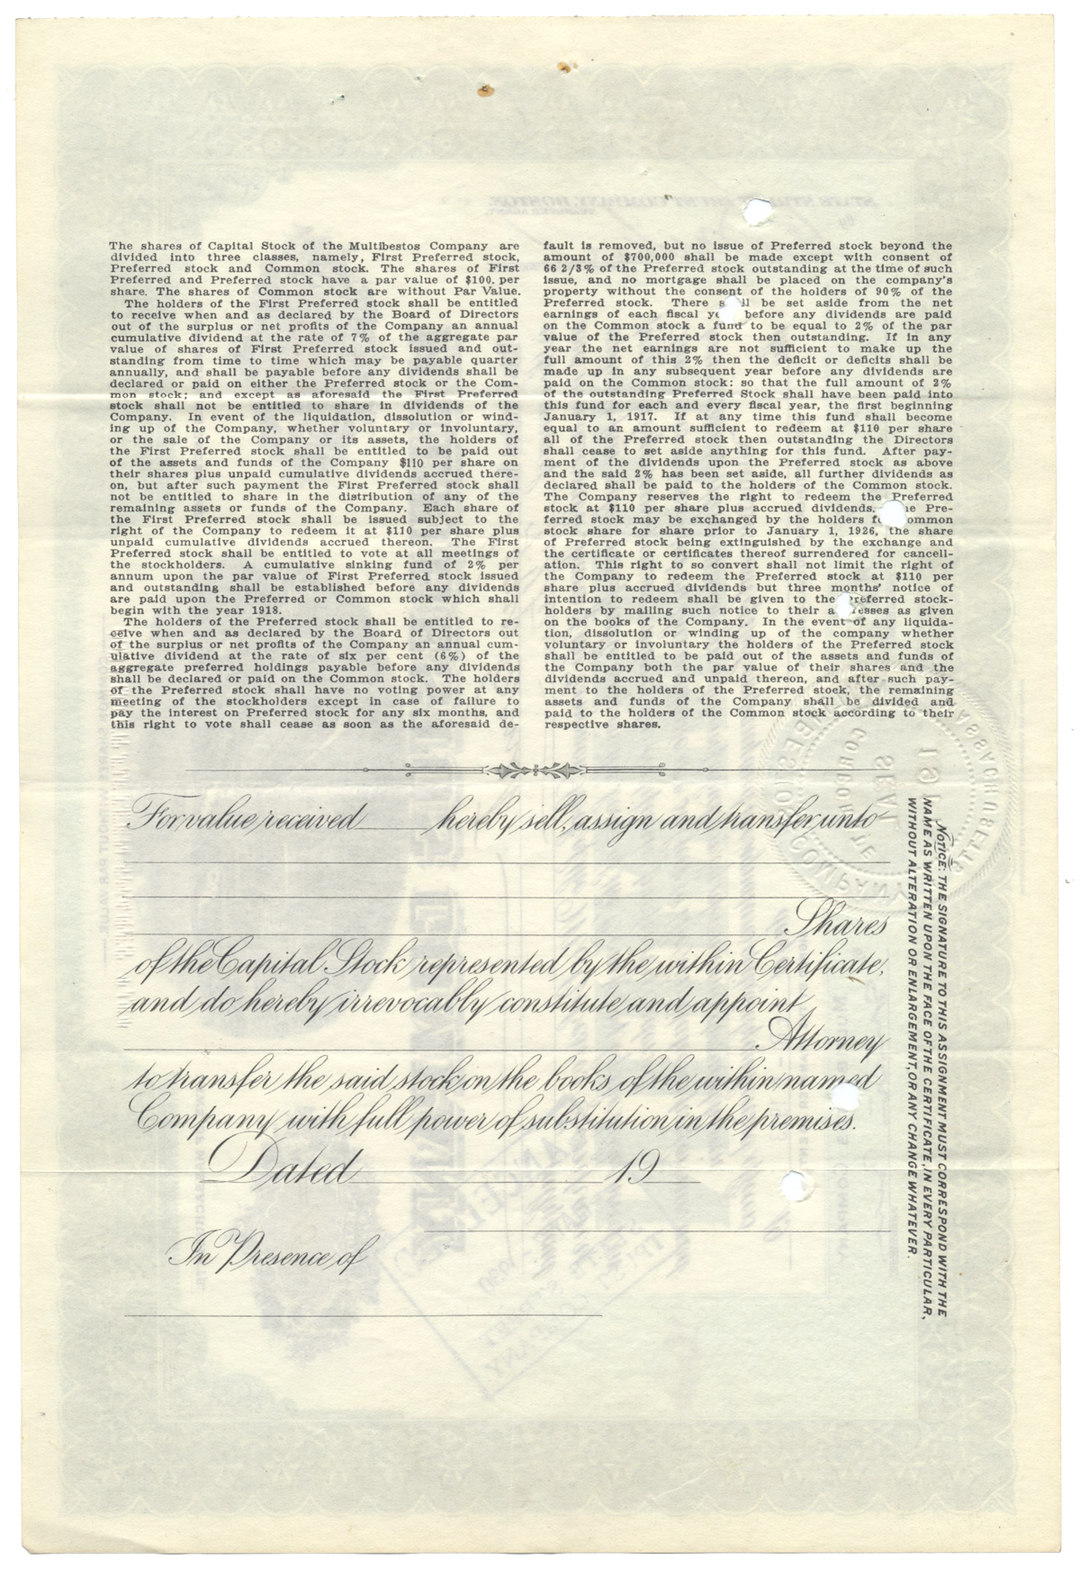 The shares of Capital Stock of the Multibestos Company are
divided into three classes, namely, First Preferred stock,
Preferred stock and Common stock. The shares of First
Preferred and Preferred stock have a par value of $100. per
share. The shares of Common stock are without Par Value.
The holders of the First Preferred stock shall be entitled
to receive when and as declared by the Board of Directors
out of the surplus or net profits of the Company an annual
cumulative dividend at the rate of 7% of the aggregate par
value of shares of First Preferred stock issued and out-
standing from time to time which may be payable quarter
annually, and shall be payable before any dividends shall be
declared or paid on either the Preferred stock or the Com-
mon stock; and except as aforesaid the First Preferred
stock shall not be entitled to share in dividends of the
Company. In event of the liquidation, dissolution or wind-
ing up of the Company, whether voluntary or involuntary,
or the sale of the Company or its assets, the holders of
the First Preferred stock shall be entitled to be paid out
of the assets and funds of the Company $110 per share on
their shares plus unpaid cumulative dividends accrued there-
on, but after such payment the First Preferred stock shall
not be entitled to share in the distribution of any of the
remaining assets or funds of the Company. Each share of
the First Preferred stock shall be issued subject to the
right of the Company to redeem it at $110 per share plus
unpaid cumulative dividends accrued thereon. The First
Preferred stock shall be entitled to vote at all meetings of
the stockholders. A cumulative sinking fund of 2% per
annum upon the par value of First Preferred stock issued
and outstanding shall be established before any dividends
are paid upon the Preferred or Common stock which shall
begin with the year 1918.
The holders of the Preferred stock shall be entitled to re-
ceive when and as declared by the Board of Directors out
of the surplus or net profits of the Company an annual cum-
ulative dividend at the rate of six per cent (6%) of the
aggregate preferred holdings payable before any dividends
shall be declared or paid on the Common stock. The holders
of the Preferred stock shall have no voting power at any
meeting of the stockholders except in case of failure to
pay the interest on Preferred stock for any six months, and
this right to vote shall cease as soon as the aforesaid de-
fault is removed, but no issue of Preferred stock beyond the
amount of $700,000 shall be made except with consent of
66 2/3% of the Preferred stock outstanding at the time of such
issue, and no mortgage shall be placed on the company's
property without the consent of the holders of 90% of the
Preferred stock. There shall be set aside from the net
earnings of each fiscal year before any dividends are paid
on the Common stock a fund to be equal to 2% of the par
value of the Preferred stock then outstanding. If in any
year the net earnings are not sufficient to make up the
full amount of this 2% then the deficit or deficits shall be
made up in any subsequent year before any dividends are
paid on the Common stock: so that the full amount of 2%
of the outstanding Preferred Stock shall have been paid into
this fund for each and every fiscal year, the first beginning
January 1, 1917. If at any time this fund shall become
equal to an amount sufficient to redeem at $110 per share
all of the Preferred stock then outstanding the Directors
shall cease to set aside anything for this fund. After pay-
ment of the dividends upon the Preferred stock as above
and the said 2% has been set aside, all further dividends as
declared shall be paid to the holders of the Common stock.
The Company reserves the right to redeem the Preferred
stock at $110 per share plus accrued dividends. The Pre-
ferred stock may be exchanged by the holders for Common
stock share for share prior to January 1, 1926, the share
of Preferred stock being extinguished by the exchange and
the certificate or certificates thereof surrendered for cancell-
ation. This right to so convert shall not limit the right of
the Company to redeem the Preferred stock at $110 per
share plus accrued dividends but three months' notice of
intention to redeem shall be given to the preferred stock-
holders by mailing such notice to their addresses as given
on the books of the Company. In the event of any liquida-
tion, dissolution or winding up of the company whether
voluntary or involuntary the holders of the Preferred stock
shall be entitled to be paid out of the assets and funds of
the Company both the par value of their shares and the
dividends accrued and unpaid thereon, and after such pay-
ment to the holders of the Preferred stock, the remaining
assets and funds of the Company shall be divided and
paid to the holders of the Common stock according to their
respective shares.
For value received hereby sell, assign and transfer unto
Shares
of the Capital Stock represented by the within Certificate,
and do hereby irrevocably constitute and appoint
Attorney
to transfer the said stock on the books of the within named
Company with full power of substitution in the premises.
Dated 19
In Presence of
NOTICE: THE SIGNATURE TO THIS ASSIGNMENT MUST CORRESPOND WITH THE
NAME AS WRITTEN UPON THE FACE OF THE CERTIFICATE, IN EVERY PARTICULAR,
WITHOUT ALTERATION OR ENLARGEMENT, OR ANY CHANGE WHATEVER.